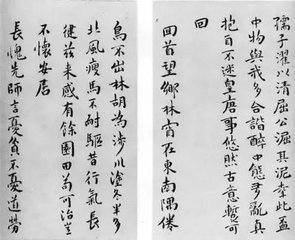 孺子濯以清屈公淈其泥幸此盃
中物與我多合諧醉中能亂真
抱自不迷皇唐事悠然古意暫可
回
回首望鄉林在東南隅倦
鳥不出林胡為涉川塗冬半多
北風瘦馬不耐驅昔行氣長
健茲來感有餘園田苟可治豈
不懷安居
長愧先師言憂貧不憂道勞